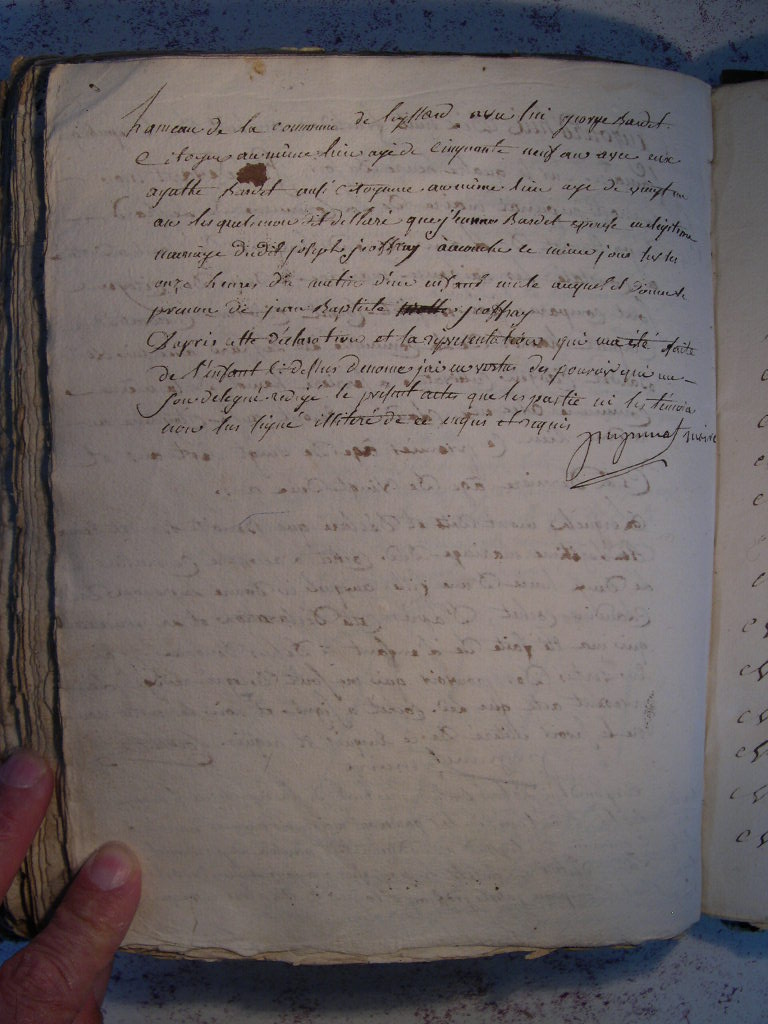 hameau de la commune de avec lui george Bardet
Citoyen au même lieu agé de Cinquante neuf an avec eux
agathe Bardet aussi Citoyenne au même lieu age de vingt
an les quels mon dit et declaré que Bardet epouse en legitime
mariage dudit joseph jeoffray acouché ce même jour sur les
onze heures du matin d'un enfant male auquel et donné le
prenom de jean Baptiste jeoffray
D'apres cette declaration et la representation qui ma été faite
de l'enfant Ci dessus denome jai en vertus des pouvoir qui me
son delegué redigé le present actes que les partie ni les témoin
non sus signé illiteré de ce enquis et requis
maire